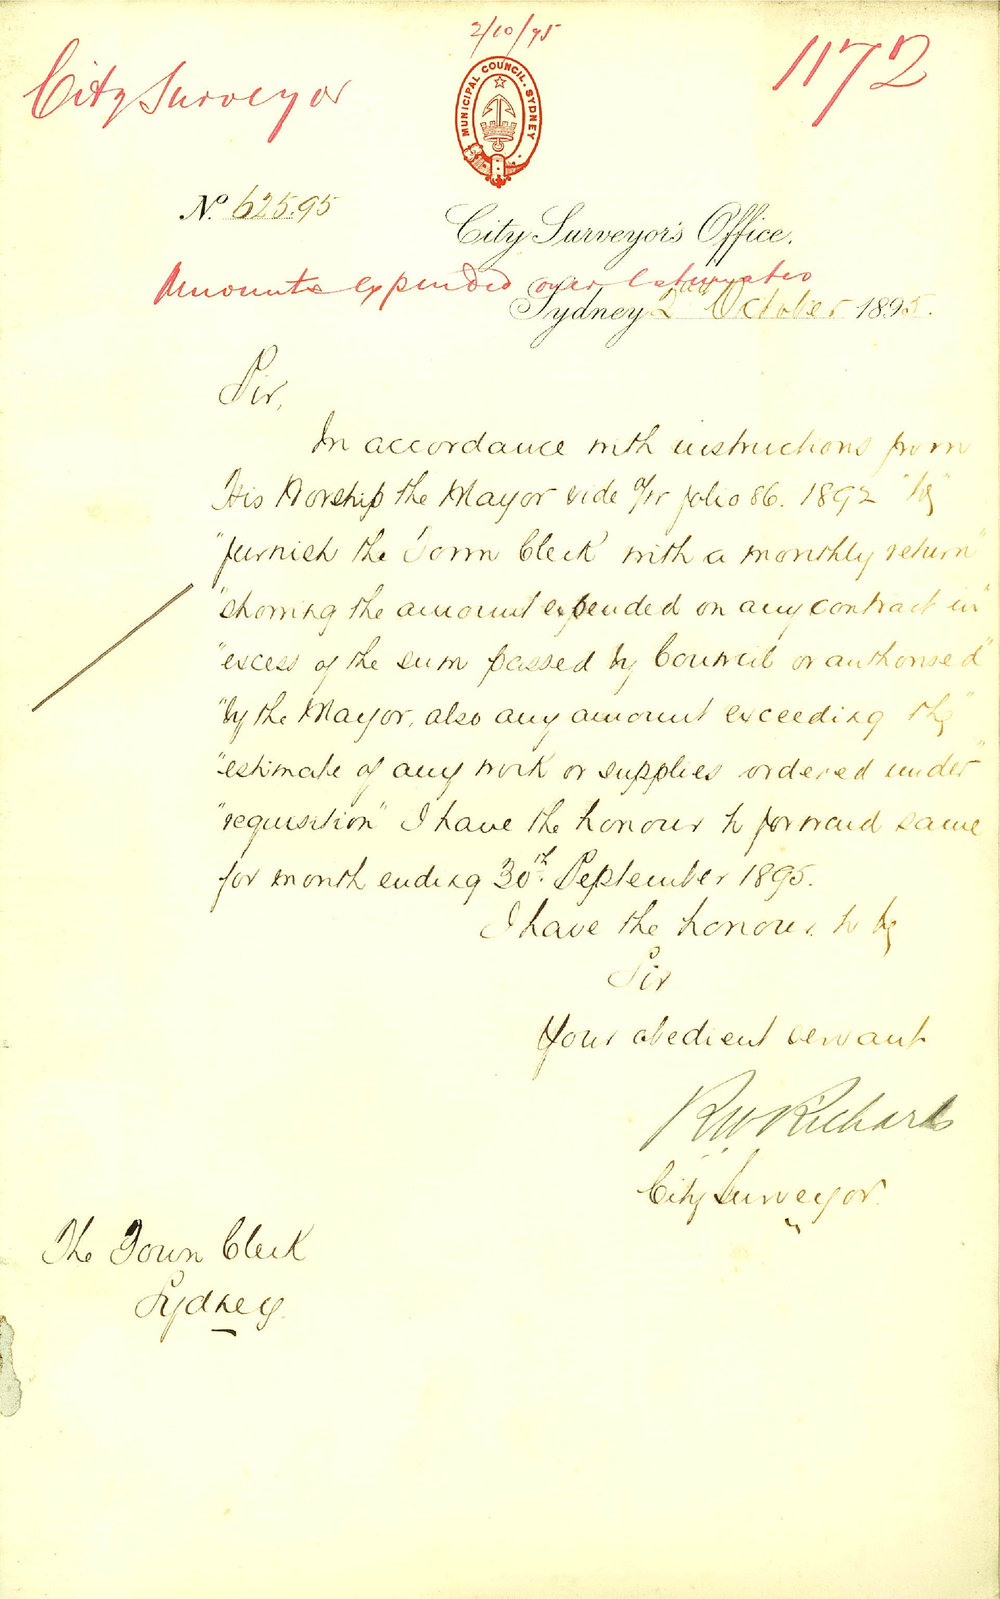 2/10/95
City Surveyor
1172
MUNICIPAL COUNCIL. SYDNEY
No. 625.95
City Surveyor's Office,
Amounts expended over Estimates
Sydney 2nd October 1895.
Sir,
In accordance with instructions from
His Worship the Mayor vide folio 86. 1892 "to
"furnish the Town Clerk with a monthly return"
"showing the amount expended on any contract in"
"excess of the sum passed by Council or authorised"
"by the Mayor, also any amount exceeding the"
"estimate of any work or supplies ordered under"
"requisition" I have the honour to forward same
for month ending 30th. September 1895.
I have the honour to be
Sir
Your obedient servant
RW Richards
City Surveyor.
The Town Clerk
Sydney.